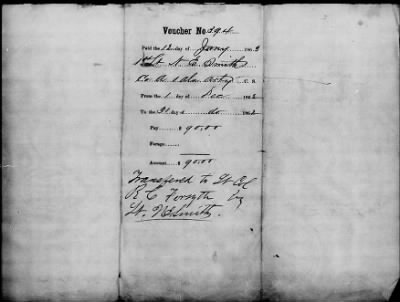 Voucher No. 294
Paid the 12 day of Jany 1863
1st Lt. N. E. Smith
Co. A 1 Ala Arty C. S.
From the 1 day of Dec 1862
To the 31 day of do 1862
Pay $ 90.00
Forage
Amount $ 90.00
Transferred to Lt Col
R. C. Forsyth by
Lt. N E Smith.